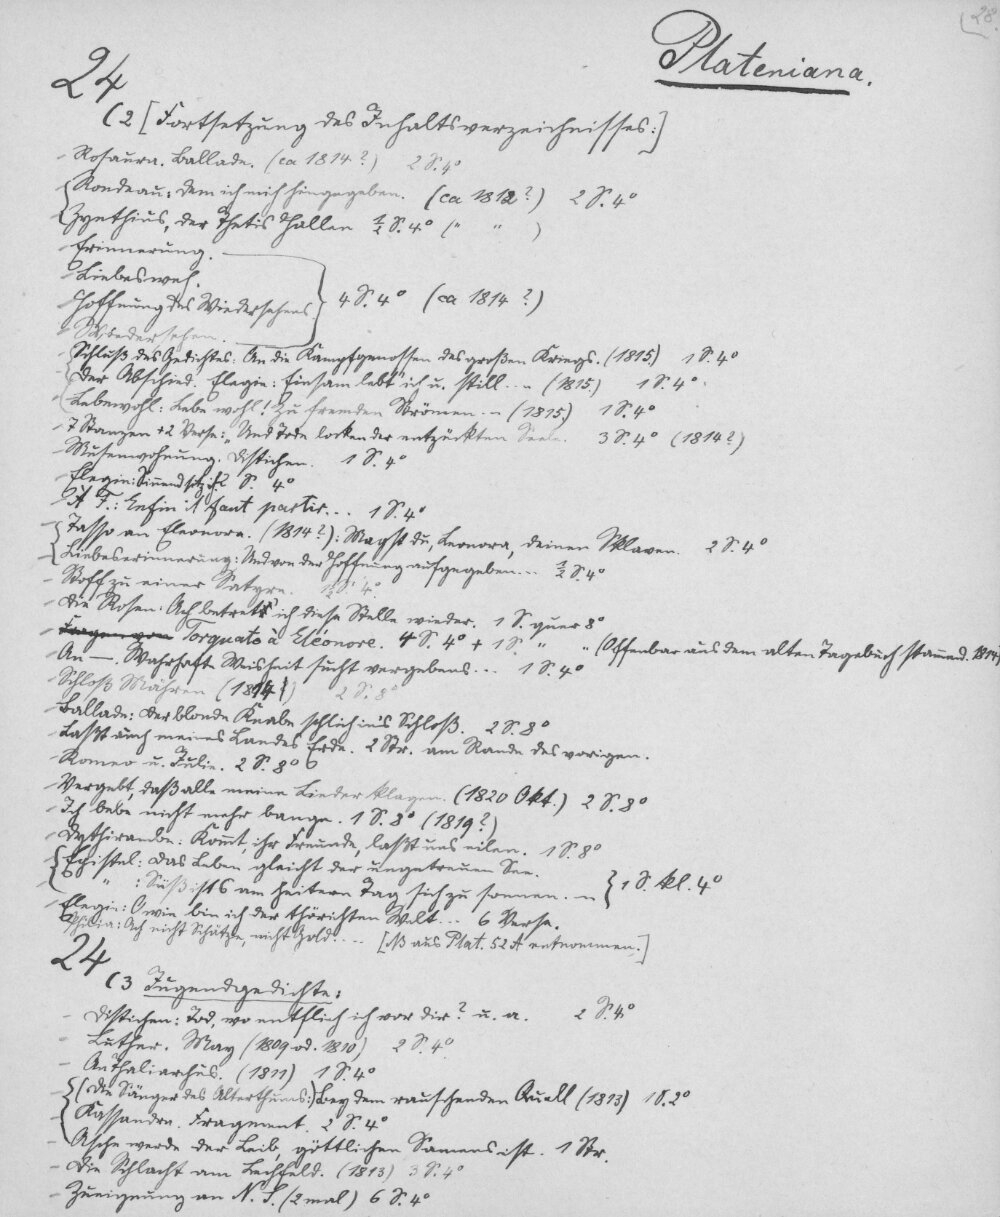 28.
Plateniana.
24
(2 [Fortsetzung des Inhaltsverzeichnisses:]
- Rosaura. Ballade. (ca 1814?) 2 S. 4°
- Rondeau: Dem ich mich hingegeben. (ca 1812?) 2 S. 4°
- Zynthius, der Thetis Hallen ½ S. 4° (" " )
- Erinnerung.
- Liebesweh.
- Hoffnung des Wiedersehens. 4 S. 4° (ca 1814?)
- Wiedersehen.
- Schluß des Gedichtes: An die Kampfgenossen des großen Kriegs. (1815) 1 S. 4°
- Der Abschied. Elegie: Einsam lebt' ich u. still.. - (1815.) 1 S. 4°.
- Lebewohl: Lebe wohl! Zu fremden Strömen. - (1815.) 1 S. 4°
- 7 Stanzen + 2 Verse: „Und Tode locken der entzückten Seele. 3 S. 4° (1814?)
- Musenwohnung. Distichen. 1 S. 4°
- Elegie: Sinnend sitz ich 2 S. 4°
- A F.: Enfin il faut partir... 1 S. 4°
- Tasso an Eleonora. (1814?): Magst du, Leonora, deinen Sklaven. 2 S. 4°
- Liebeserinnerung: Und von der Hoffnung aufgegeben... ½ S. 4°
- Stoff zu einer Satyre. ½ S. 4°.
- Die Rosen: Ach betret' ich diese Stelle wieder. 1 S. quer 8°
- Torquato à Eléonore. 4 S. 4° + 1 S. " " (Offenbar aus dem alten Tagebuch stammend. 1814)
- An —. Wahrhaft Weisheit sucht vergebens... 1 S. 4°
- Schloß Mähren (1814?) 2 S. 8°
- Ballade: Der blonde Knabe schlich in's Schloß. 2 S. 8°
- Laßt auch meines Landes Erde. 2 Str. am Rande des vorigen.
- Romeo u. Julie. 2 S. 8°
- Vergebt, daß alle meine Lieder klagen. (1820 Okt.) 2 S. 8°
- Ich bebe nicht mehr bange. 1 S. 8° (1819?)
- Dythirambe: Kommt, ihr Freunde, laßt uns eilen. 1 S. 8°
- Epistel: Das Leben gleicht der ungetreuen See.
- " : Süß ists am heitern Tag sich zu sonnen. - 1 S. kl. 4°
- Elegie: O wie bin ich der thörichten Welt... 6 Verse.
Philia: Ach nicht Schätze, nicht Gold.... [Ist aus Plat. 52 A entnommen.]
24
(3 Jugendgedichte:
- Distichen: Tod, wo entflich ich vor dir? u. a. 2 S. 4°
- Luther. May (1809 od. 1810) 2 S. 4°
- An Thaliarchus. (1811) 1 S. 4°
- (Die Sänger des Alterthums:) Bey dem rauschenden Quell (1813) 1 S. 2°
- Kassandra. Fragment. 2 S. 4°
- Asche werde der Leib, göttlichen Samens ist. 1 Str.
- Die Schlacht am Lechfeld. (1813) 3 S. 4°
- Zueignung an N. S. (2 mal) 6 S. 4°